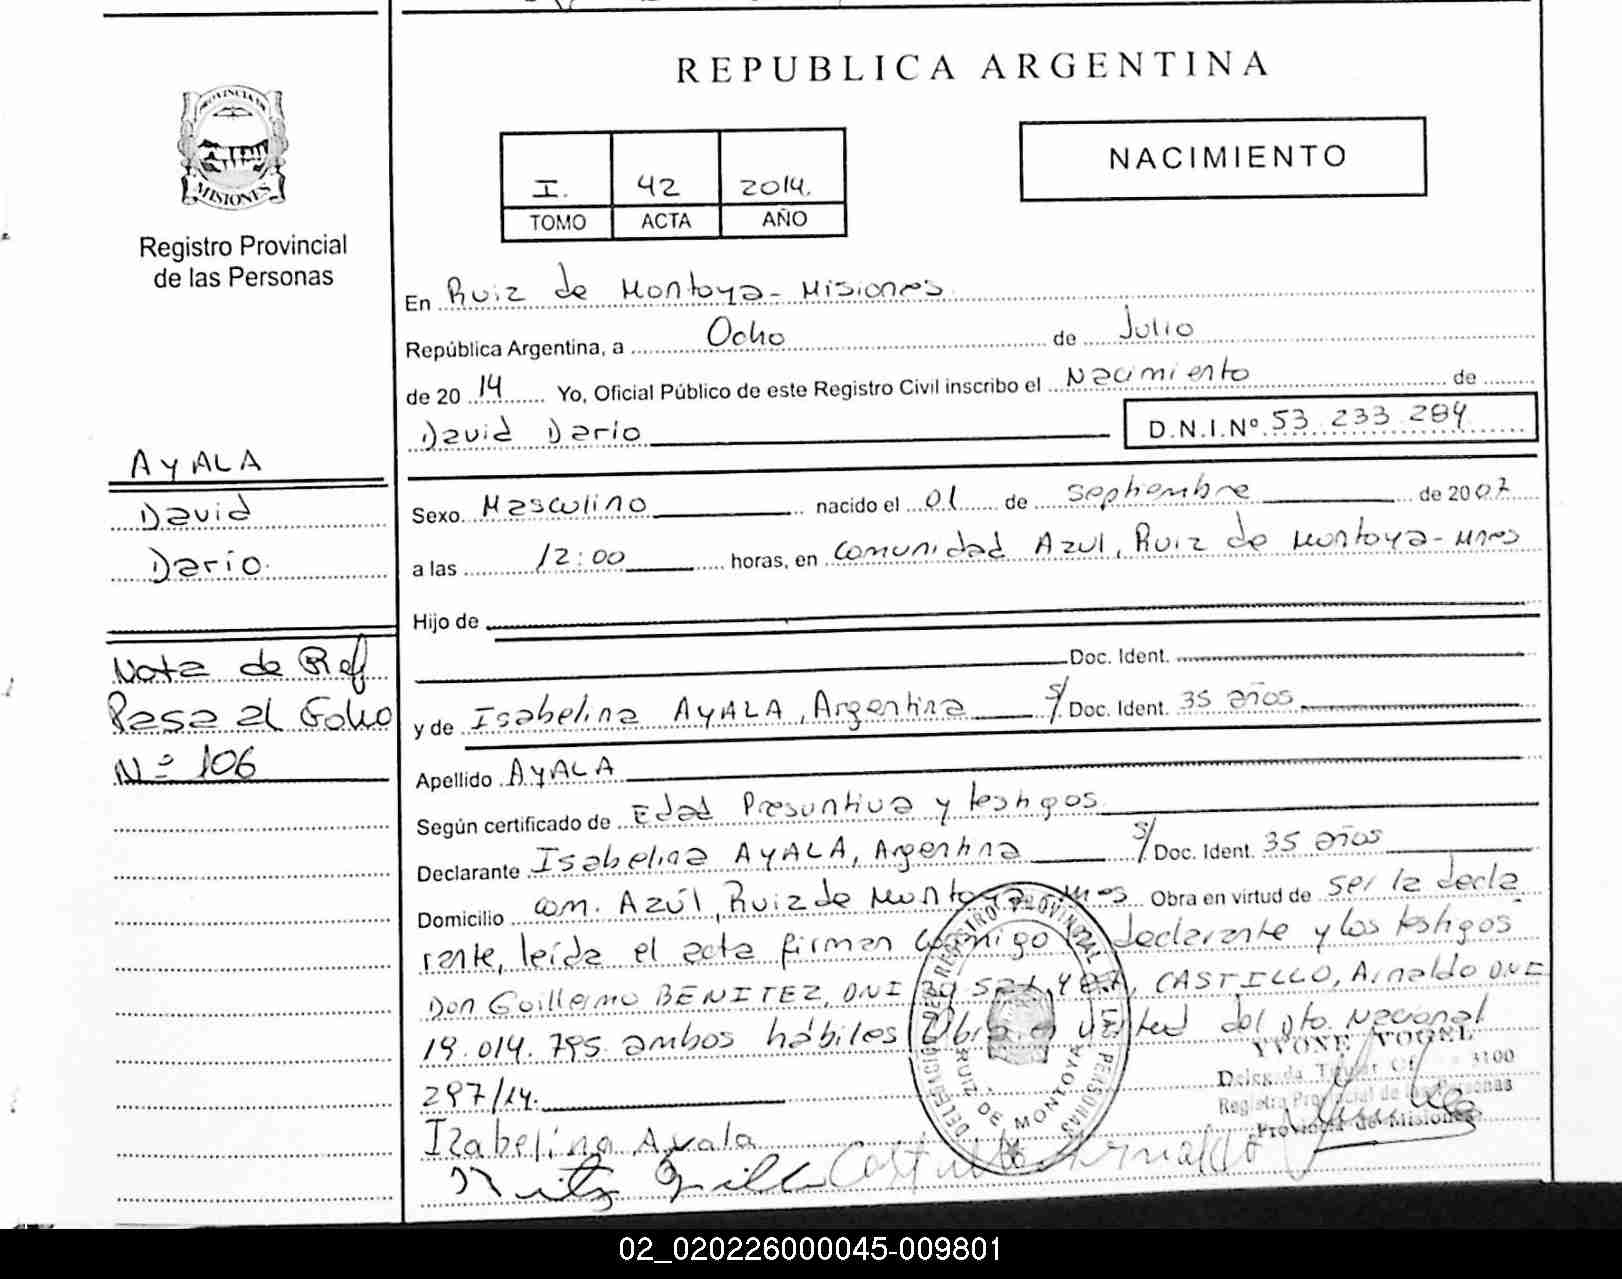 REPUBLICA ARGENTINA
PROVINCIA DE
MISIONES
Registro Provincial
de las Personas
NACIMIENTO
I. 42 2014.
TOMO ACTA AÑO
En Ruiz de Montoya - Misiones
República Argentina, a Ocho de Julio
de 20 14 Yo, Oficial Público de este Registro Civil inscribo el Nacimiento de
David Dario D.N.I.Nº 53 233 284
AYALA
David
Dario.
Sexo Masculino nacido el 01 de Septiembre de 2007
a las 12:00 horas, en Comunidad Azul, Ruiz de Montoya - Mnes
Hijo de
Doc. Ident.
Nota de Ref
Pasa al Folio
Nº 106
y de Isabelina AYALA, Argentina S/ Doc. Ident. 35 años
Apellido AYALA
Según certificado de Edad Presuntiva y testigos
Declarante Isabelina AYALA, Argentina S/ Doc. Ident. 35 años
Domicilio Com. Azúl, Ruiz de Montoya - Mnes Obra en virtud de ser la decla
rante, leída el acta firman conmigo la declarante y los testigos
Don Guillermo BENITEZ, DNI CASTILLO, Arnaldo DNI
19.014.795 ambos hábiles Obra en virtud del Dto Nacional
297/14.
DELEGACION DEL REGISTRO PROVINCIAL DE LAS PERSONAS
RUIZ DE MONTOYA
YVONE VOGEL
Delegada Titular Of 3100
Registro Provincial de las Personas
Provincia de Misiones
Izabelina Ayala
Castillo Arnaldo
02_020226000045-009801